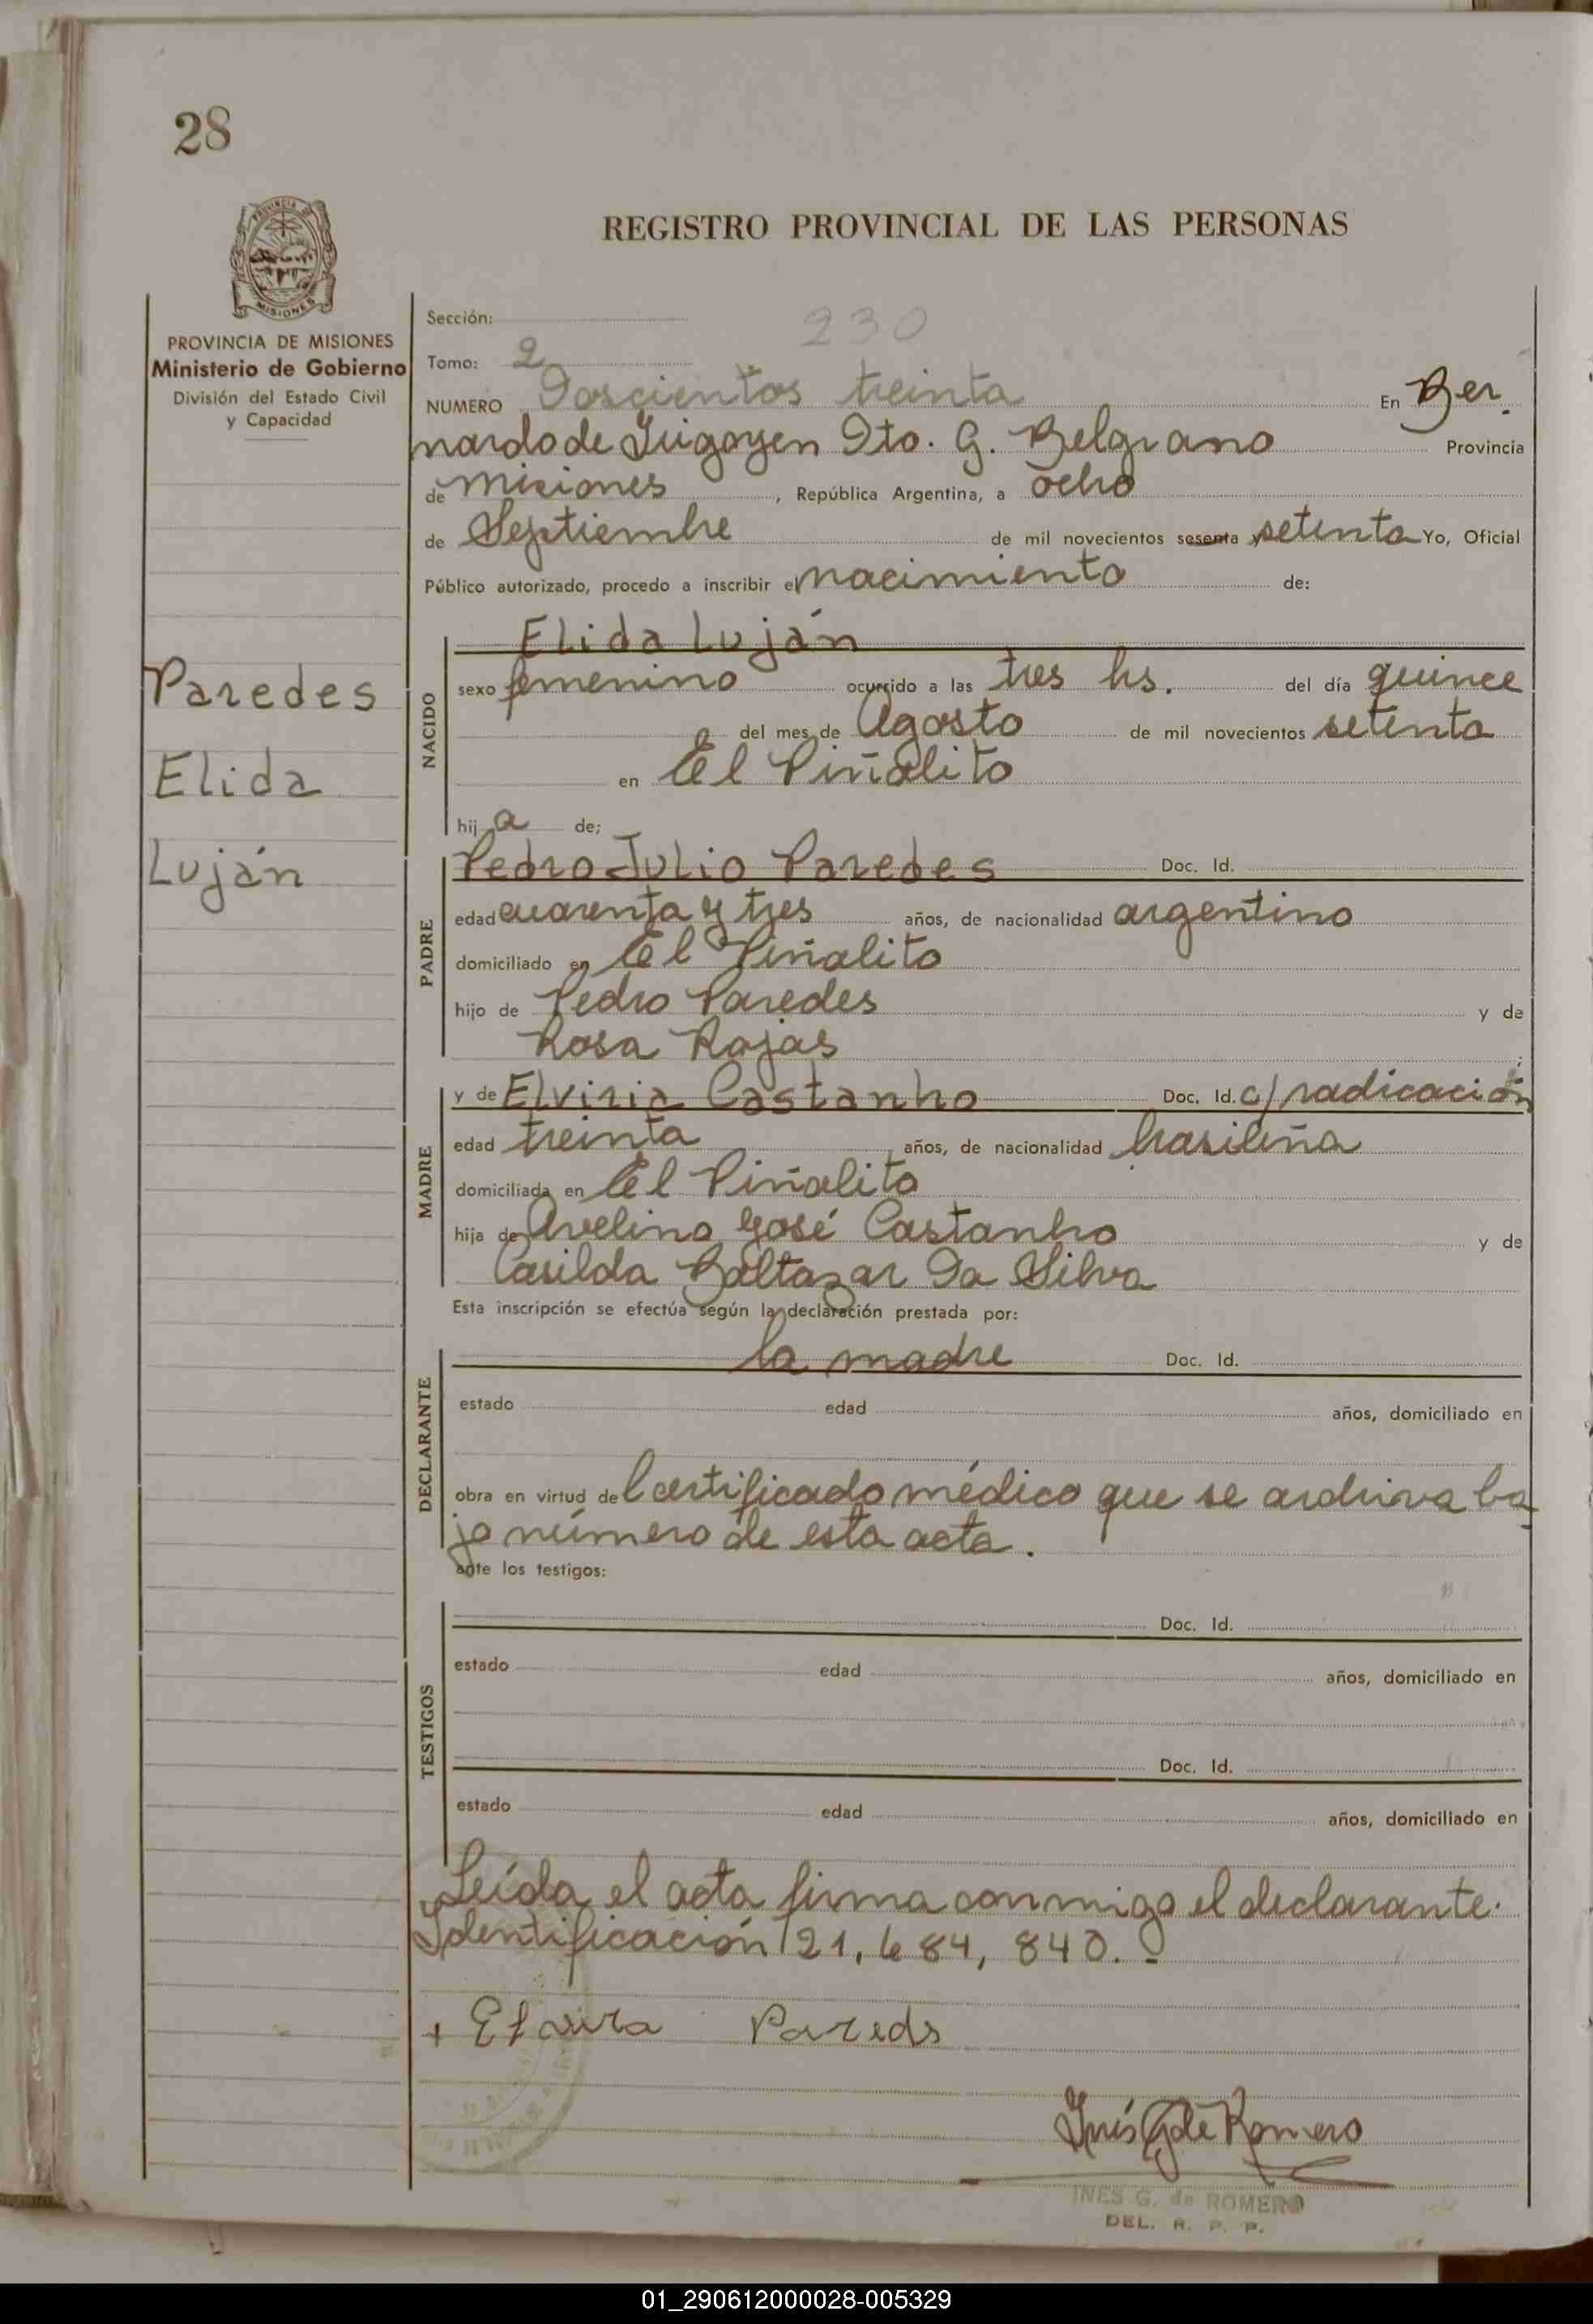 28
REGISTRO PROVINCIAL DE LAS PERSONAS
PROVINCIA DE MISIONES
MISIONES
PROVINCIA DE MISIONES
Ministerio de Gobierno
División del Estado Civil
y Capacidad
Paredes
Elida
Luján
Sección:
230
Tomo: 2
NUMERO Doscientos treinta En Ber-
nardo de Irigoyen Dto. G. Belgrano Provincia
de Misiones, República Argentina, a ocho
de Septiembre de mil novecientos sesenta y setenta Yo, Oficial
Público autorizado, procedo a inscribir el nacimiento de:
NACIDO
Elida Luján
sexo femenino ocurrido a las tres hs. del día quince
del mes de Agosto de mil novecientos setenta
en El Piñalito
hij a de;
PADRE
Pedro Julio Paredes Doc. Id.
edad cuarenta y tres años, de nacionalidad argentino
domiciliado en El Piñalito
hijo de Pedro Paredes y de
Rosa Rojas ;
MADRE
y de Elviria Castanho Doc. Id. c/radicación
edad treinta años, de nacionalidad brasileña
domiciliada en El Piñalito
hija de Avelino José Castanho y de
Casilda Baltazar Da Silva
Esta inscripción se efectúa según la declaración prestada por:
DECLARANTE
la madre Doc. Id.
estado edad años, domiciliado en
obra en virtud de Certificado médico que se archiva ba-
jo número de esta acta.
ante los testigos:
TESTIGOS
Doc. Id.
estado edad años, domiciliado en
Doc. Id.
estado edad años, domiciliado en
Leída el acta firma conmigo el declarante.
Identificación 21, 684, 840.-
+ Elvira Pareds
Inés G de Romero
INES G. de ROMERO
DEL. R. P. P.
01_290612000028-005329